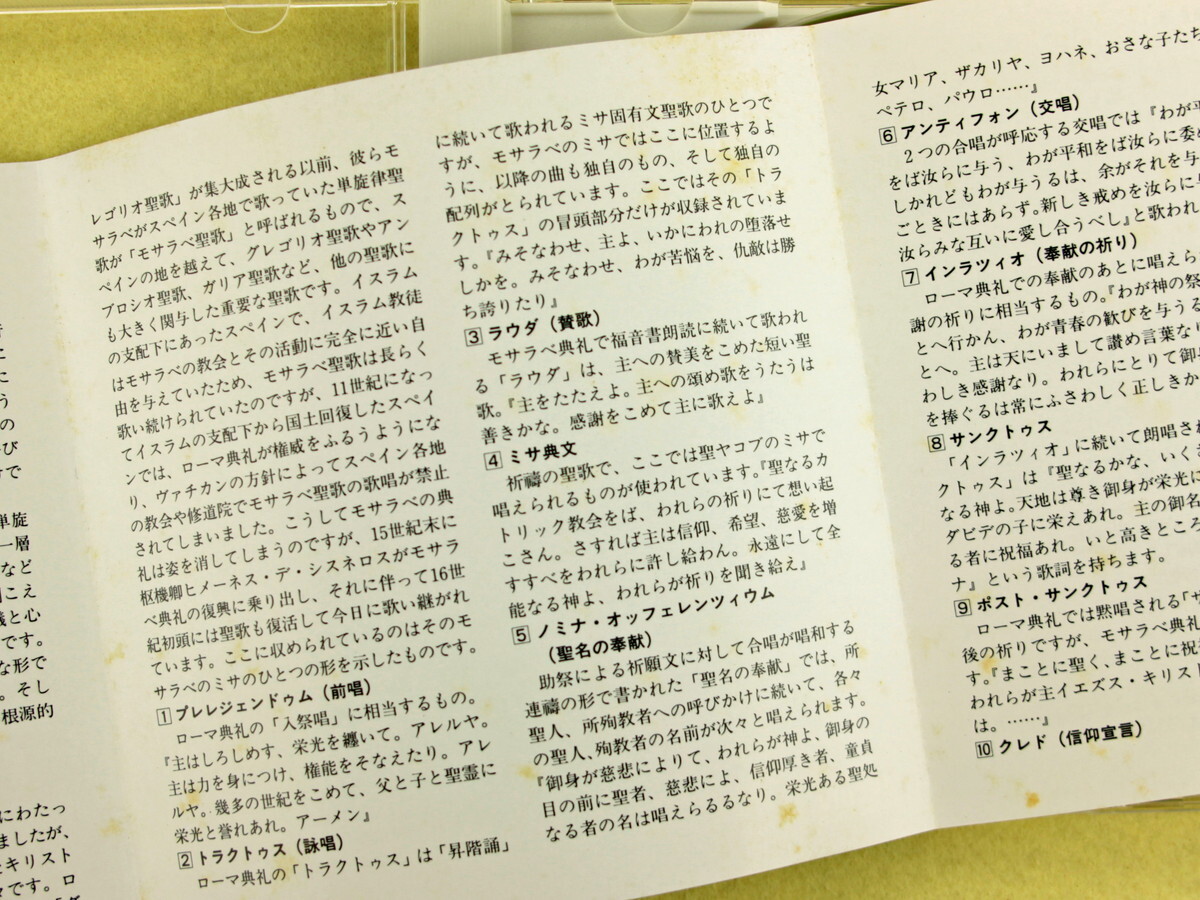 単旋
一層
など
です。
な形で
。そし
根源的
にわたっ
ましたが、
キリスト
です。ロ
レゴリオ聖歌」が集大成される以前、彼らモ
サラベがスペイン各地で歌っていた単旋律聖
歌が「モサラベ聖歌」と呼ばれるもので、ス
ペインの地を越えて、グレゴリオ聖歌やアン
ブロシオ聖歌、ガリア聖歌など、他の聖歌に
も大きく関与した重要な聖歌です。イスラム
の支配下にあったスペインで、イスラム教徒
はモサラベの教会とその活動に完全に近い自
由を与えていたため、モサラベ聖歌は長らく
歌い続けられていたのですが、11世紀になっ
てイスラムの支配下から国土回復したスペイ
ンでは、ローマ典礼が権威をふるうようにな
り、ヴァチカンの方針によってスペイン各地
の教会や修道院でモサラベ聖歌の歌唱が禁止
されてしまいました。こうしてモサラベの典
礼は姿を消してしまうのですが、15世紀末に
枢機卿ヒメーネス・デ・シスネロスがモサラ
ベ典礼の復興に乗り出し、それに伴って16世
紀初頭には聖歌も復活して今日に歌い継がれ
ています。ここに収められているのはそのモ
サラベのミサのひとつの形を示したものです。
1 プレレジェンドゥム（前唱）
ローマ典礼の「入祭唱」に相当するもの。
『主はしろしめす、栄光を纏いて。アレルヤ。
主は力を身につけ、権能をそなえたり。アレ
ルヤ。幾多の世紀をこめて、父と子と聖霊に
栄光と誉れあれ。アーメン』
2 トラクトゥス（詠唱）
ローマ典礼の「トラクトゥス」は「昇階誦」
に続いて歌われるミサ固有文聖歌のひとつで
すが、モサラベのミサではここに位置するよ
うに、以降の曲も独自のもの、そして独自の
配列がとられています。ここではその「トラ
クトゥス」の冒頭部分だけが収録されていま
す。『みそなわせ、主よ、いかにわれの堕落せ
しかを。みそなわせ、わが苦悩を、仇敵は勝
ち誇りたり』
3 ラウダ（賛歌）
モサラベ典礼で福音書朗読に続いて歌われ
る「ラウダ」は、主への賛美をこめた短い聖
歌。『主をたたえよ。主への頌め歌をうたうは
善きかな。感謝をこめて主に歌えよ』
4 ミサ典文
祈禱の聖歌で、ここでは聖ヤコブのミサで
唱えられるものが使われています。『聖なるカ
トリック教会をば、われらの祈りにて想い起
こさん。さすれば主は信仰、希望、慈愛を増
すすべをわれらに許し給わん。永遠にして全
能なる神よ、われらが祈りを聞き給え』
5 ノミナ・オッフェレンツィウム
（聖名の奉献）
助祭による祈願文に対して合唱が唱和する
連禱の形で書かれた「聖名の奉献」では、所
聖人、所殉教者への呼びかけに続いて、各々
の聖人、殉教者の名前が次々と唱えられます。
『御身が慈悲によりて、われらが神よ、御身の
目の前に聖者、慈悲によ、信仰厚き者、童貞
なる者の名は唱えらるるなり。栄光ある聖処
女マリア、ザカリヤ、ヨハネ、おさな子たち
ペテロ、パウロ……』
6 アンティフォン（交唱）
2つの合唱が呼応する交唱では『わが平
をば汝らに与う、わが平和をば汝らに委
しかれどもわが与うるは、余がそれを与
ごときにはあらず。新しき戒めを汝らに与
汝らみな互いに愛し合うべし』と歌われ
7 インラツィオ（奉献の祈り）
ローマ典礼での奉献のあとに唱えら
謝の祈りに相当するもの。『わが神の祭
とへ行かん、わが青春の歓びを与うる
とへ。主は天にいまして讃め言葉な
わしき感謝なり。われらにとりて御身
を捧ぐるは常にふさわしく正しきか
8 サンクトゥス
「インラツィオ」に続いて朗唱され
クトゥス」は『聖なるかな、いく
なる神よ。天地は尊き御身が栄光に
ダビデの子に栄えあれ。主の御名
る者に祝福あれ。いと高きところ
ナ』という歌詞を持ちます。
9 ポスト・サンクトゥス
ローマ典礼では黙唱される「サ
後の祈りですが、モサラベ典礼
す。『まことに聖く、まことに祝
われらが主イエズス・キリスト
は。……』
10 クレド（信仰宣言）